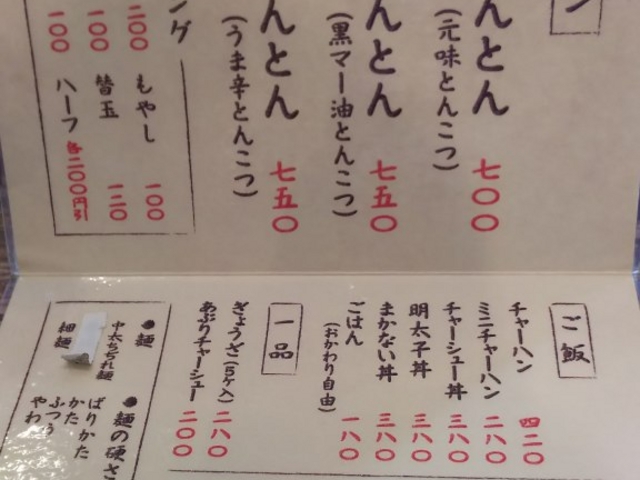 んとん 七〇〇
(元味とんこつ)
んとん 七五〇
(黒マー油とんこつ)
んとん 七五〇
(うま辛とんこつ)
ング
二〇〇
もやし 一〇〇
一〇〇
替玉 一二〇
一〇〇
ハーフ 各二〇〇円引
ご飯
チャーハン 四二〇
ミニチャーハン 二八〇
チャーシュー丼 三八〇
明太子丼 三八〇
まかない丼 三八〇
ごはん 一八〇
(おかわり自由)
一品
ぎょうざ(5ヶ入) 二八〇
あぶりチャーシュー 二〇〇
●麺
中太ちぢれ麺
細麺
●麺の硬さ
ばりかた
かた
ふつう
やわ